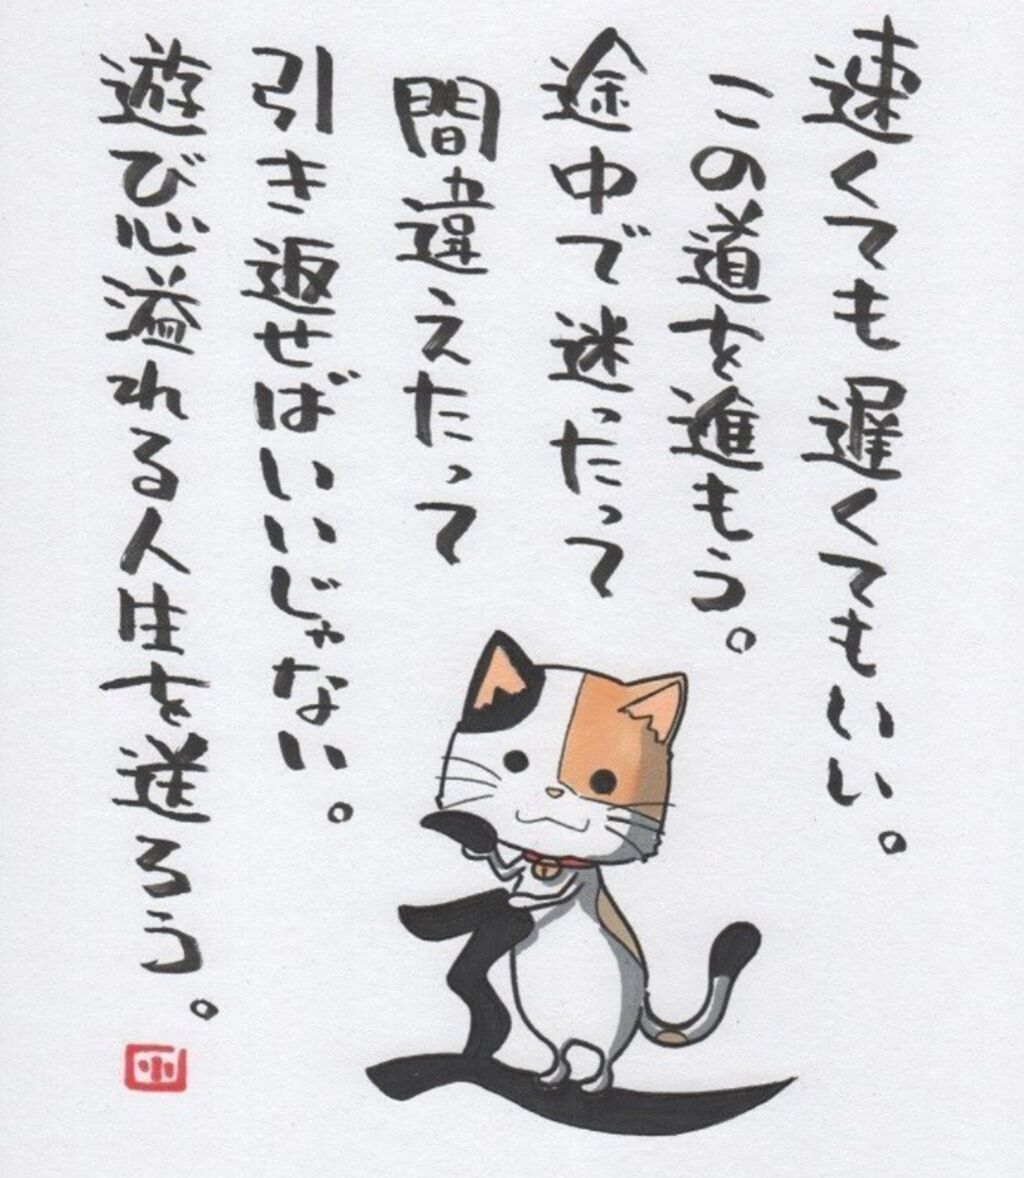 速くても遅くてもいい。
この道を進もう。
途中で迷ったって
間違えたって
引き返せばいいじゃない。
遊び心溢れる人生を送ろう。